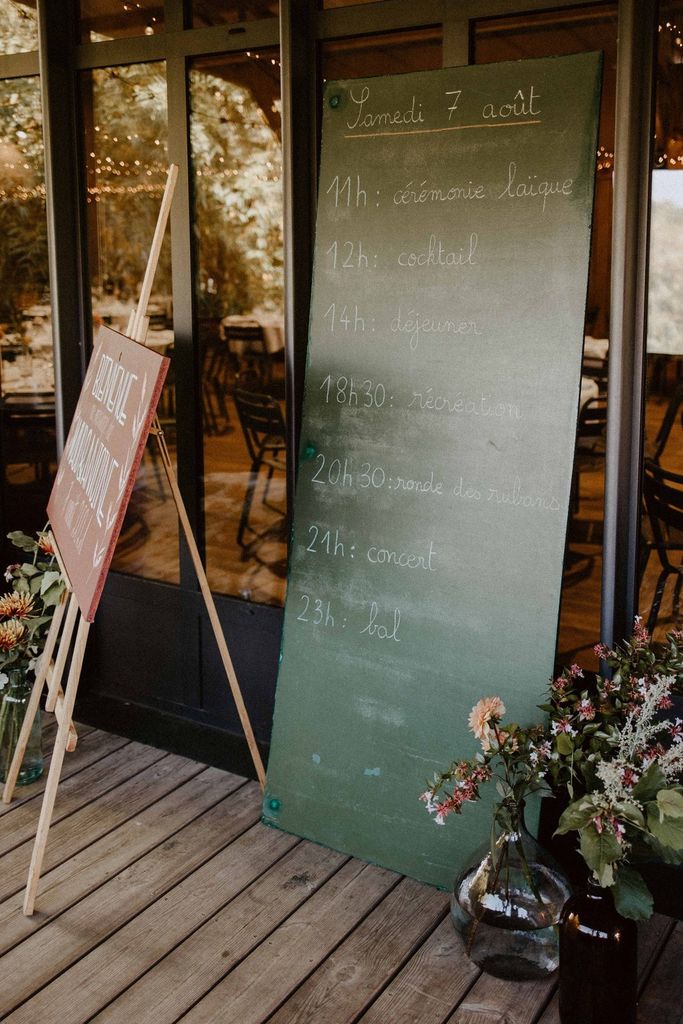 BIENVENUE
Samedi 7 août
11h : cérémonie laïque
12h : cocktail
14h : déjeuner
18h30 : récréation
20h30 : ronde des rubans
21h : concert
23h : bal